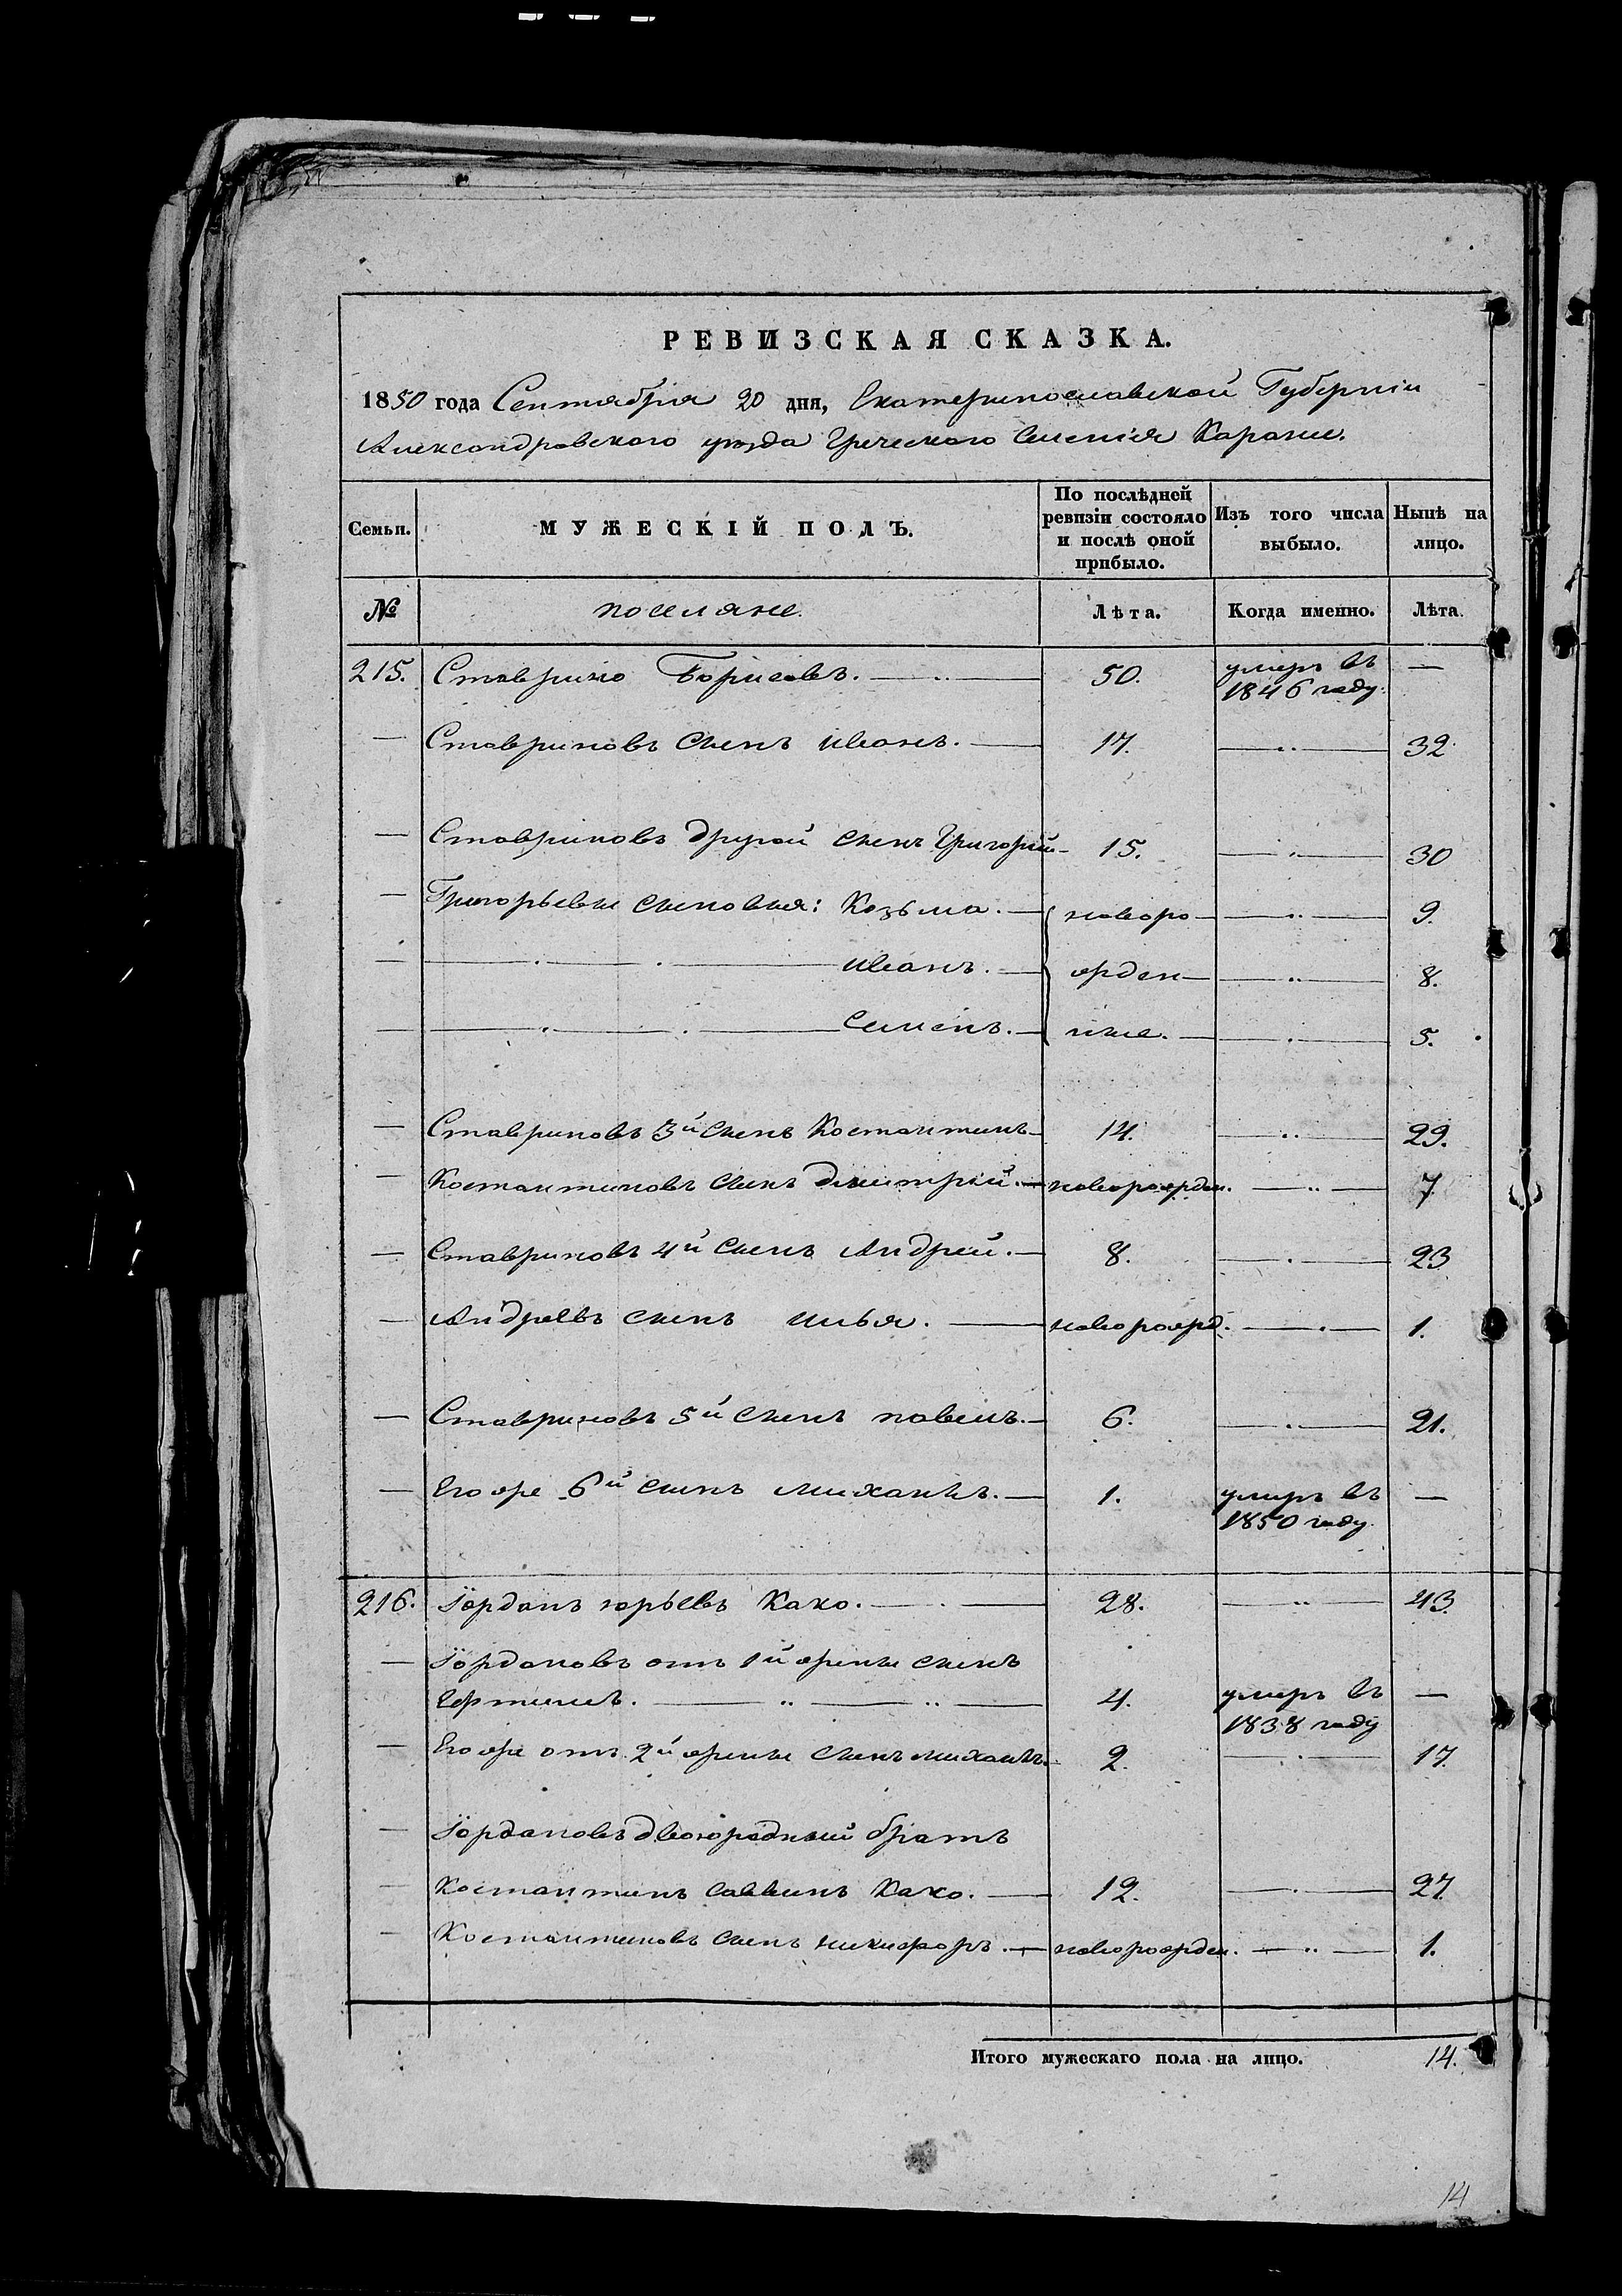 РЕВИЗСКАЯ СКАЗКА.
1850 года Сентября 20 дня, Екатеринославской Губерніи
Александровского уѣзда Греческого Селенія Карани.
Семьи. МУЖЕСКІЙ ПОЛЪ. По послѣдней ревизіи состояло и послѣ оной прибыло. Изъ того числа выбыло. Нынѣ на лицо.
№ поселяне. Лѣта. Когда именно. Лѣта.
215. Ставрино Борисовъ. 50. умеръ въ 1846 году. —
— Ставриновъ сынъ Иванъ. 17. — 32
— Ставриновъ другой сынъ Григорій 15. — 30
— Григорьевы сыновья: Козьма. новоро — 9.
— Иванъ. жден — 8.
— Семенъ. ные. — 5.
— Ставриновъ 3й сынъ Костантинъ 14. — 29.
— Костантиновъ сынъ Дмитрій. новорожден. — 7
— Ставриновъ 4й сынъ Андрей. 8. — 23
— Андреевъ сынъ Илья. новорожд. — 1.
— Ставриновъ 5й сынъ Павелъ. 6. — 21.
— Его же 6й сынъ Михаилъ. 1. умеръ въ 1850 году. —
216. Іорданъ Юрьевъ Како. 28. — 43.
— Іордановъ отъ 1й жены сынъ
4. умеръ въ 1838 году —
— Его же отъ 2й жены сынъ Михаилъ. 2. — 17.
— Іордановъ двоюродный братъ
— Костантинъ Саввинъ Како. 12. — 27.
— Костантиновъ сынъ Никифоръ. новорожден. — 1.
Итого мужескаго пола на лицо. 14.
14